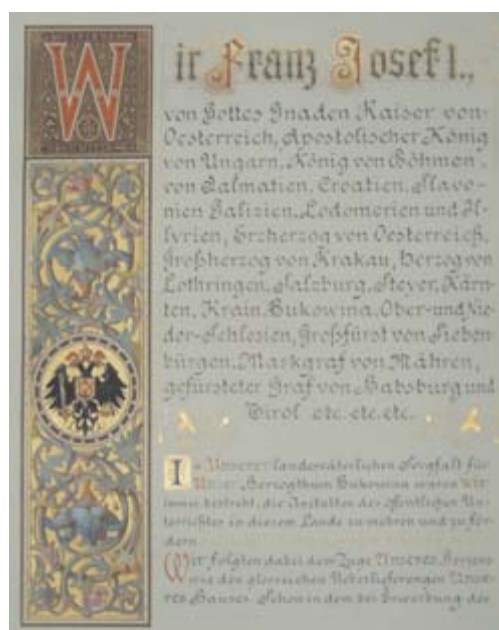 Wir Franz Josef I.,
von Gottes Gnaden Kaiser von
Oesterreich, Apostolischer König
von Ungarn, König von Böhmen,
von Dalmatien, Croatien, Slavo-
nien Galizien, Lodomerien und Il-
lyrien, Erzherzog von Oesterreich,
Großherzog von Krakau, Herzog von
Lothringen, Salzburg, Steyer, Kärn-
ten, Krain, Bukowina, Ober- und Nie-
der-Schlesien, Großfürst von Sieben-
bürgen, Markgraf von Mähren,
gefürsteter Graf von Habsburg und
Tirol etc. etc. etc.
In Unserer landesväterlichen Sorgfalt für
Unser Herzogthum Bukowina waren Wir
immer bestrebt, die Anstalten des öffentlichen Un-
terrichtes in diesem Lande zu mehren und zu för-
dern
Wir folgten dabei dem Zuge Unseres Herzens
wie den glorreichen Ueberlieferungen Unse-
res Hauses. Schon in dem bei Erwerbung des